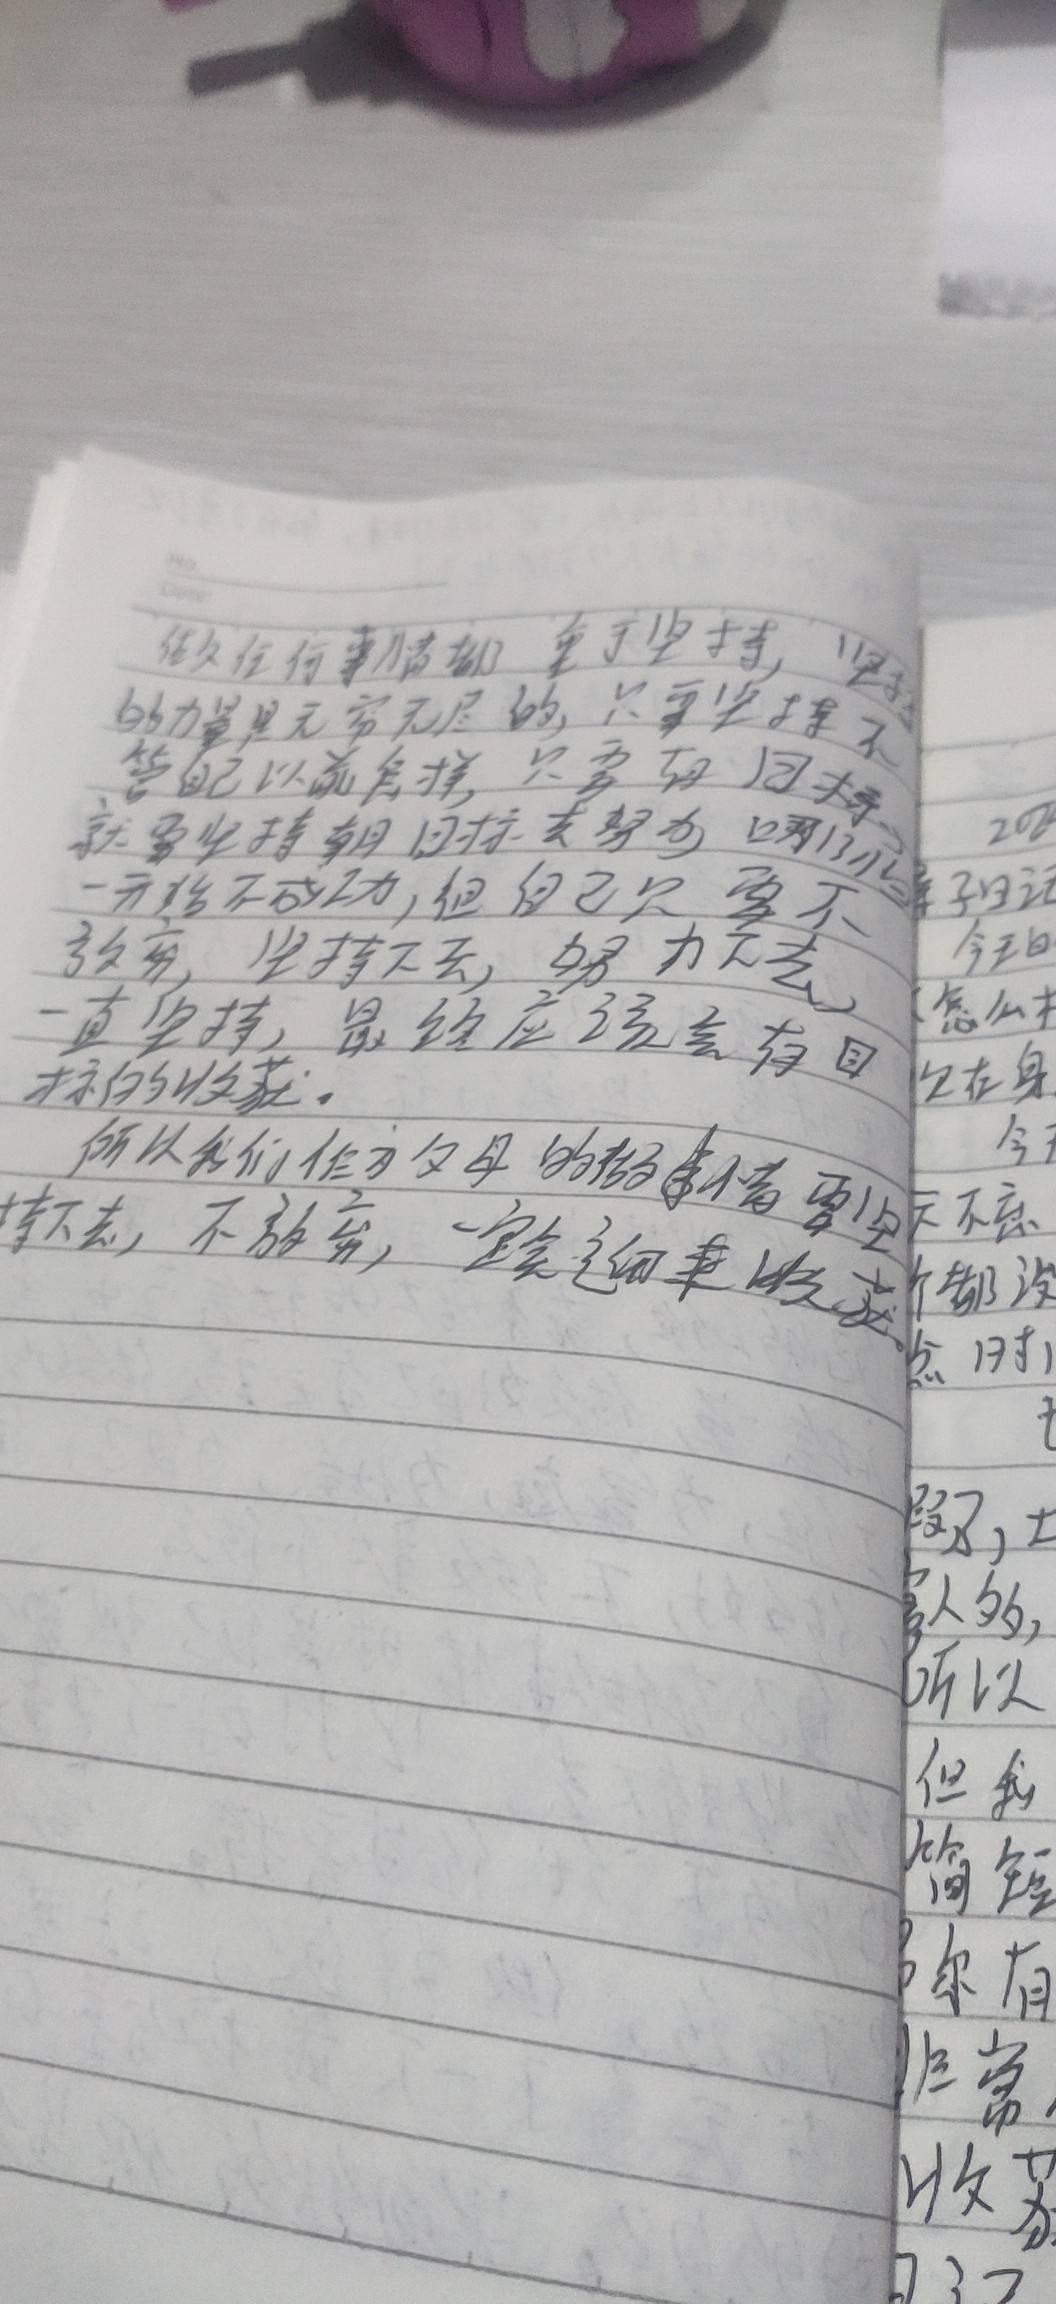 No.
Date
做任何事情都重于坚持,坚持
的力量是无穷无尽的,只要坚持不
管自己以前怎样,只要有目标
就要坚持朝目标去努力,哪怕
一开始不成功,但自己只要不
放弃,坚持下去,努力下去,
一直坚持,最终应该会有目
标的收获。
所以我们作为父母的做事情要坚
持下去,不放弃,一定会迎来收获。
202
亲子日记
今天
怎么
欠在身
今天
天不
个都没
点时
假了,
人的,
所以
但我
简短
你有
非常
收获